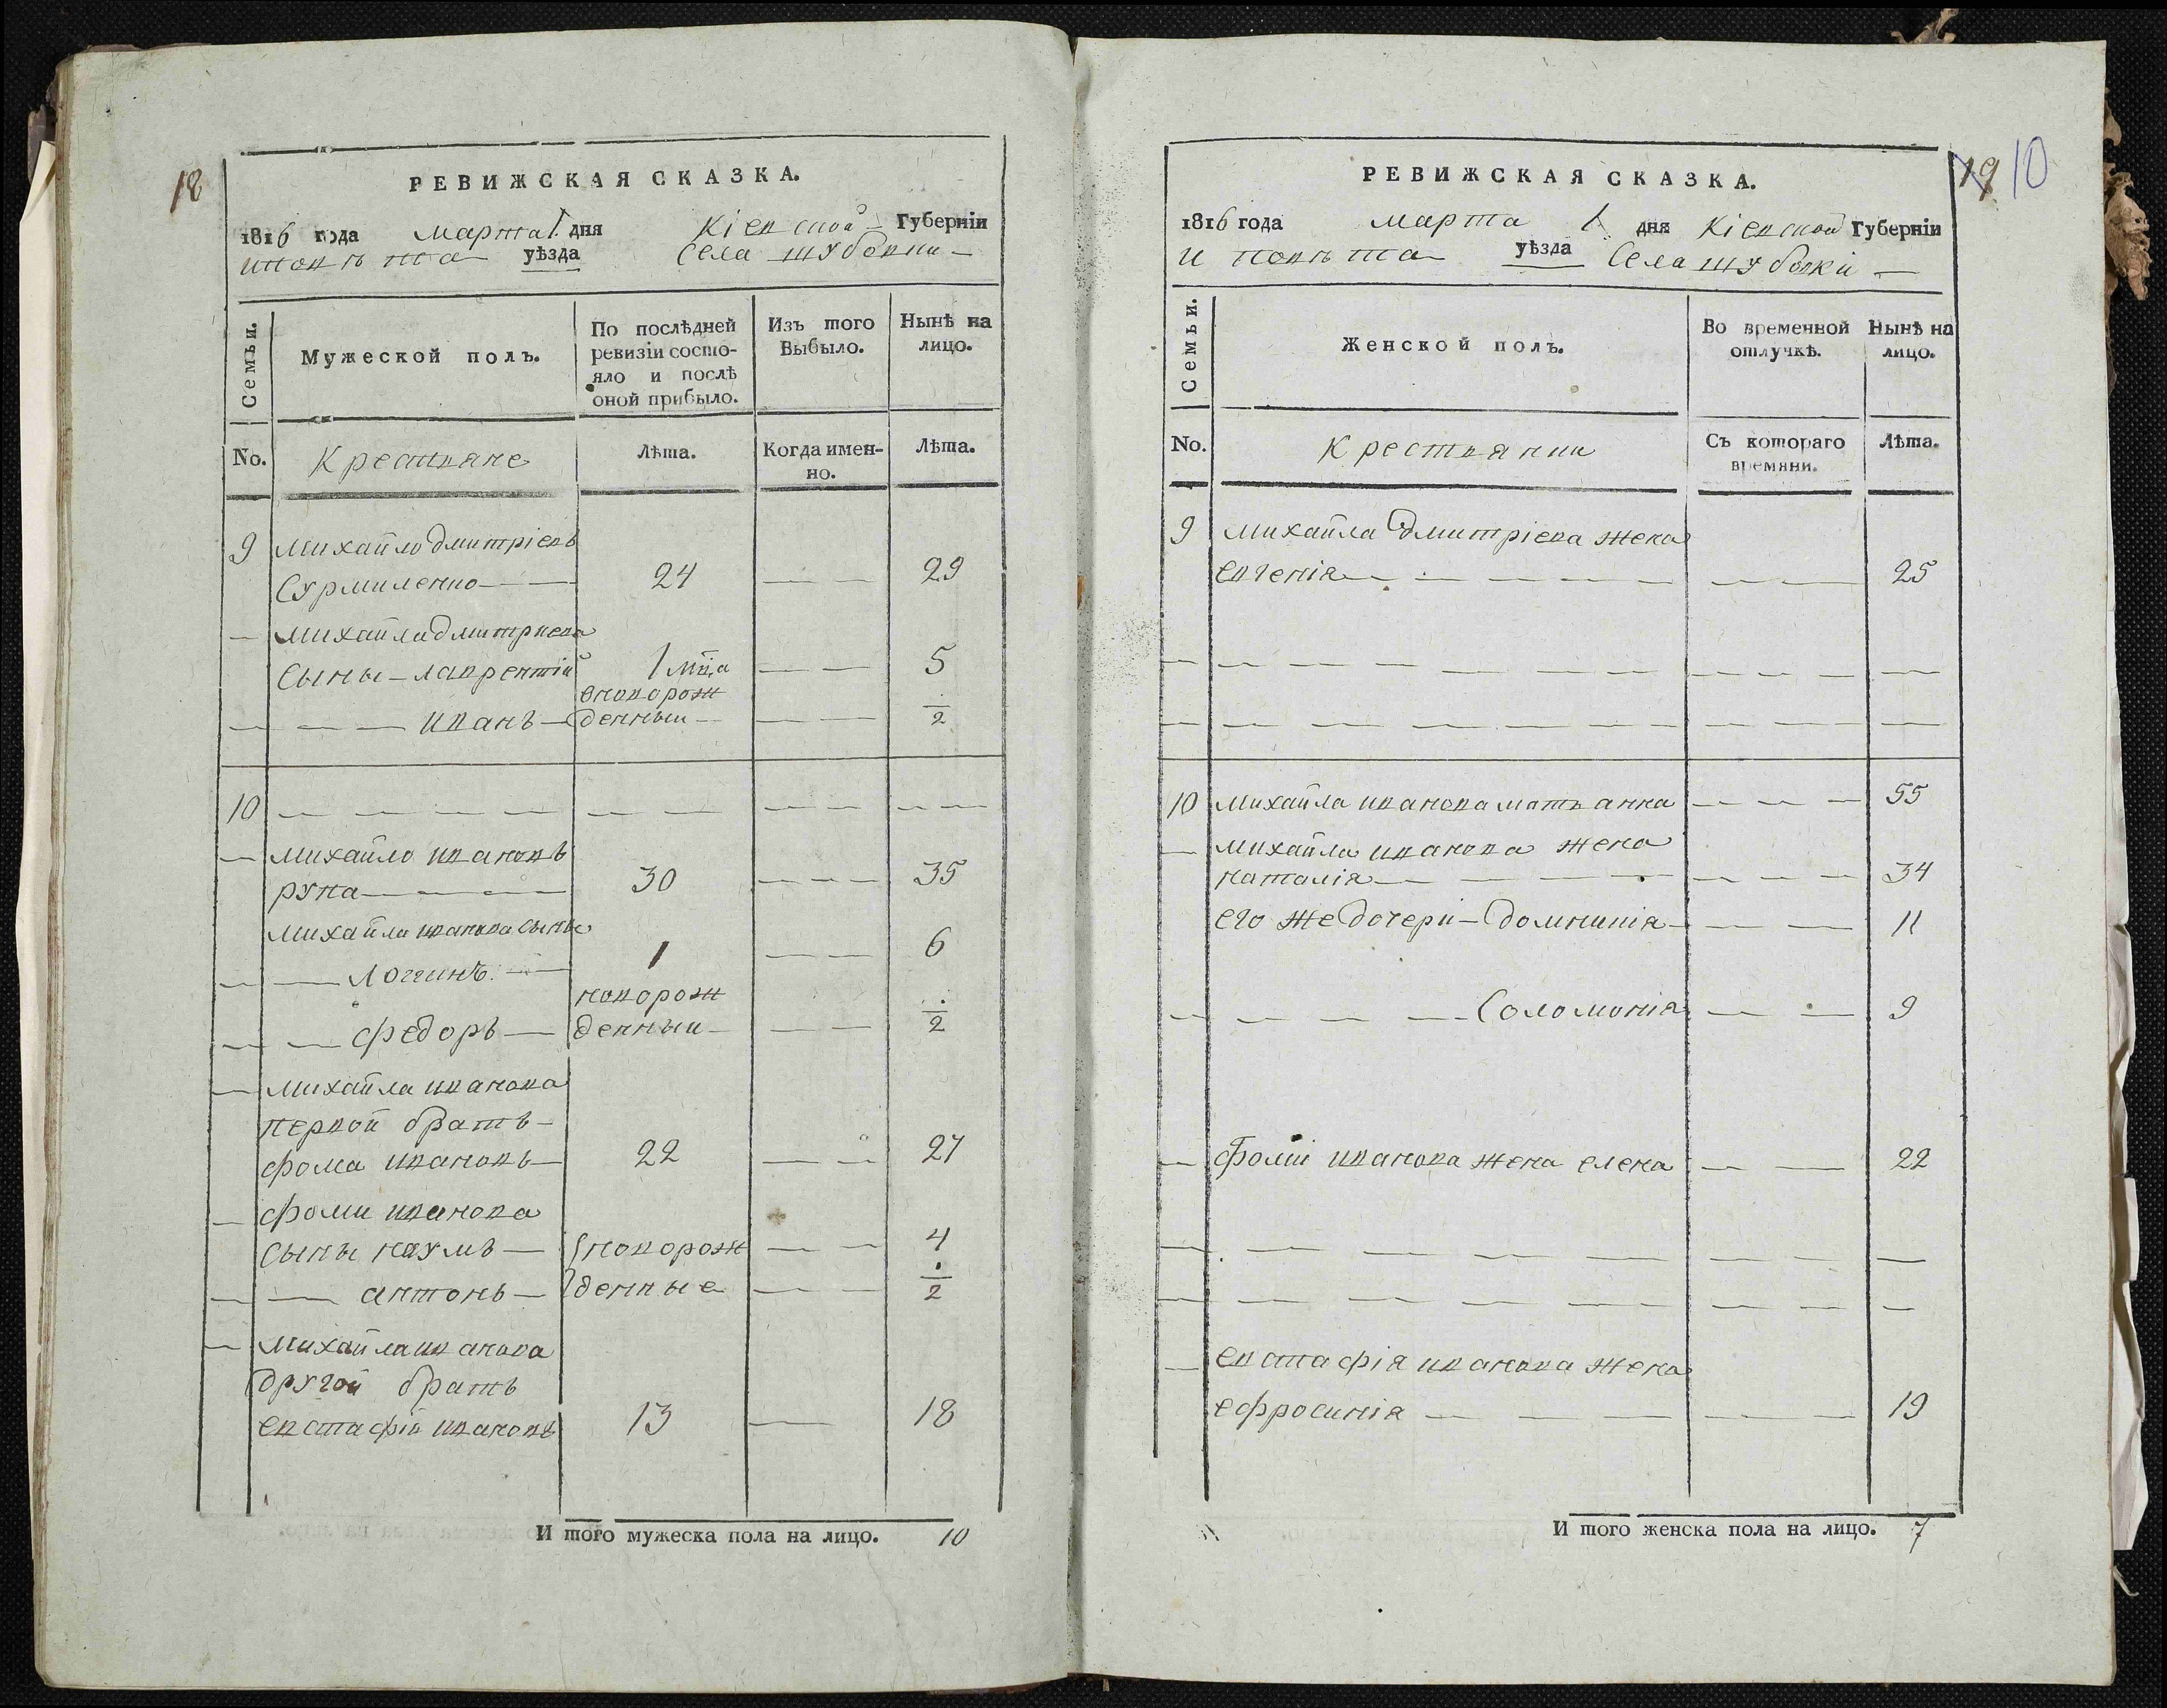 18
РЕВИЖСКАЯ СКАЗКА.
1816 года марта 1 дня Кіевской Губерніи
и повѣта уѣзда Села Шубовки
Семьи.
Мужеской полъ.
По послѣдней ревизіи состо-
яло и послѣ
оной прибыло.
Изъ того
Выбыло.
Нынѣ на
лицо.
No.
Крестьяне
Лѣта.
Когда имен-
но.
Лѣта.
9 Михайло Дмитріевъ
Сурмиленко 24 29
Михайла Дмитриева
Сыны Лаврентій 1 мца 5
новорож
Иванъ денныи 1/2
10
Михайло Ивановъ
Руна 30 35
Михайла Иванова Сыны
Логинъ 1 6
новорож
Федоръ денныи 1/2
Михайла Иванова
первой братъ
Фома Ивановъ 22 27
Фоми Иванова
Сыны Наумъ новорож 4
Антонъ денные 1/2
Михайла Иванова
другой братъ
Евстафій Ивановъ 13 18
И того мужеска пола на лицо. 10
19 10
РЕВИЖСКАЯ СКАЗКА.
1816 года марта 1 дня Кіевской Губерніи
и повѣта уѣзда Села Шубовки
Семьи.
Женской полъ.
Во временной
отлучкѣ.
Нынѣ на
лицо.
No.
Крестьянки
Съ котораго
времяни.
Лѣта.
9 Михайла Дмитріева жена
Евгенія 25
10 Михайла Иванова мать Анна 55
Михайла Иванова жена
Наталія 34
его же дочери Домникія 11
Соломонія 9
Фоми Иванова жена Елена 22
Евстафія Иванова жена
Ефросинія 19
И того женска пола на лицо. 7